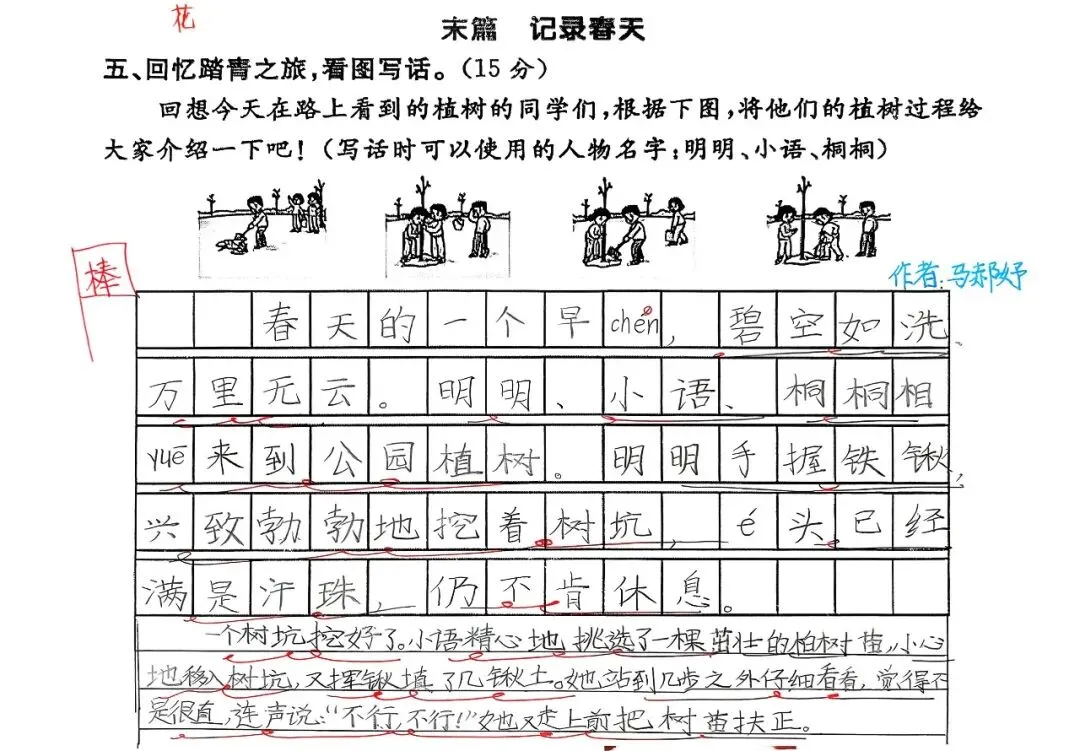 花
末篇 记录春天
五、回忆踏青之旅,看图写话。(15分)
回想今天在路上看到的植树的同学们,根据下图,将他们的植树过程给
大家介绍一下吧!(写话时可以使用的人物名字:明明、小语、桐桐)
棒
作者:马郝妤
春天的一个早chén,碧空如洗、
万里无云。明明、小语、桐桐相
yuē来到公园植树。明明手握铁锹,
兴致勃勃地挖着树坑,é头已经
满是汗珠,仍不肯休息。
一个树坑挖好了。小语精心地挑选了一棵茁壮的柏树苗,小心
地移入树坑,又挥锹填了几锹土。她站到几步之外仔细看看,觉得不
是很直,连声说:“不行,不行!”她又走上前把树苗扶正。